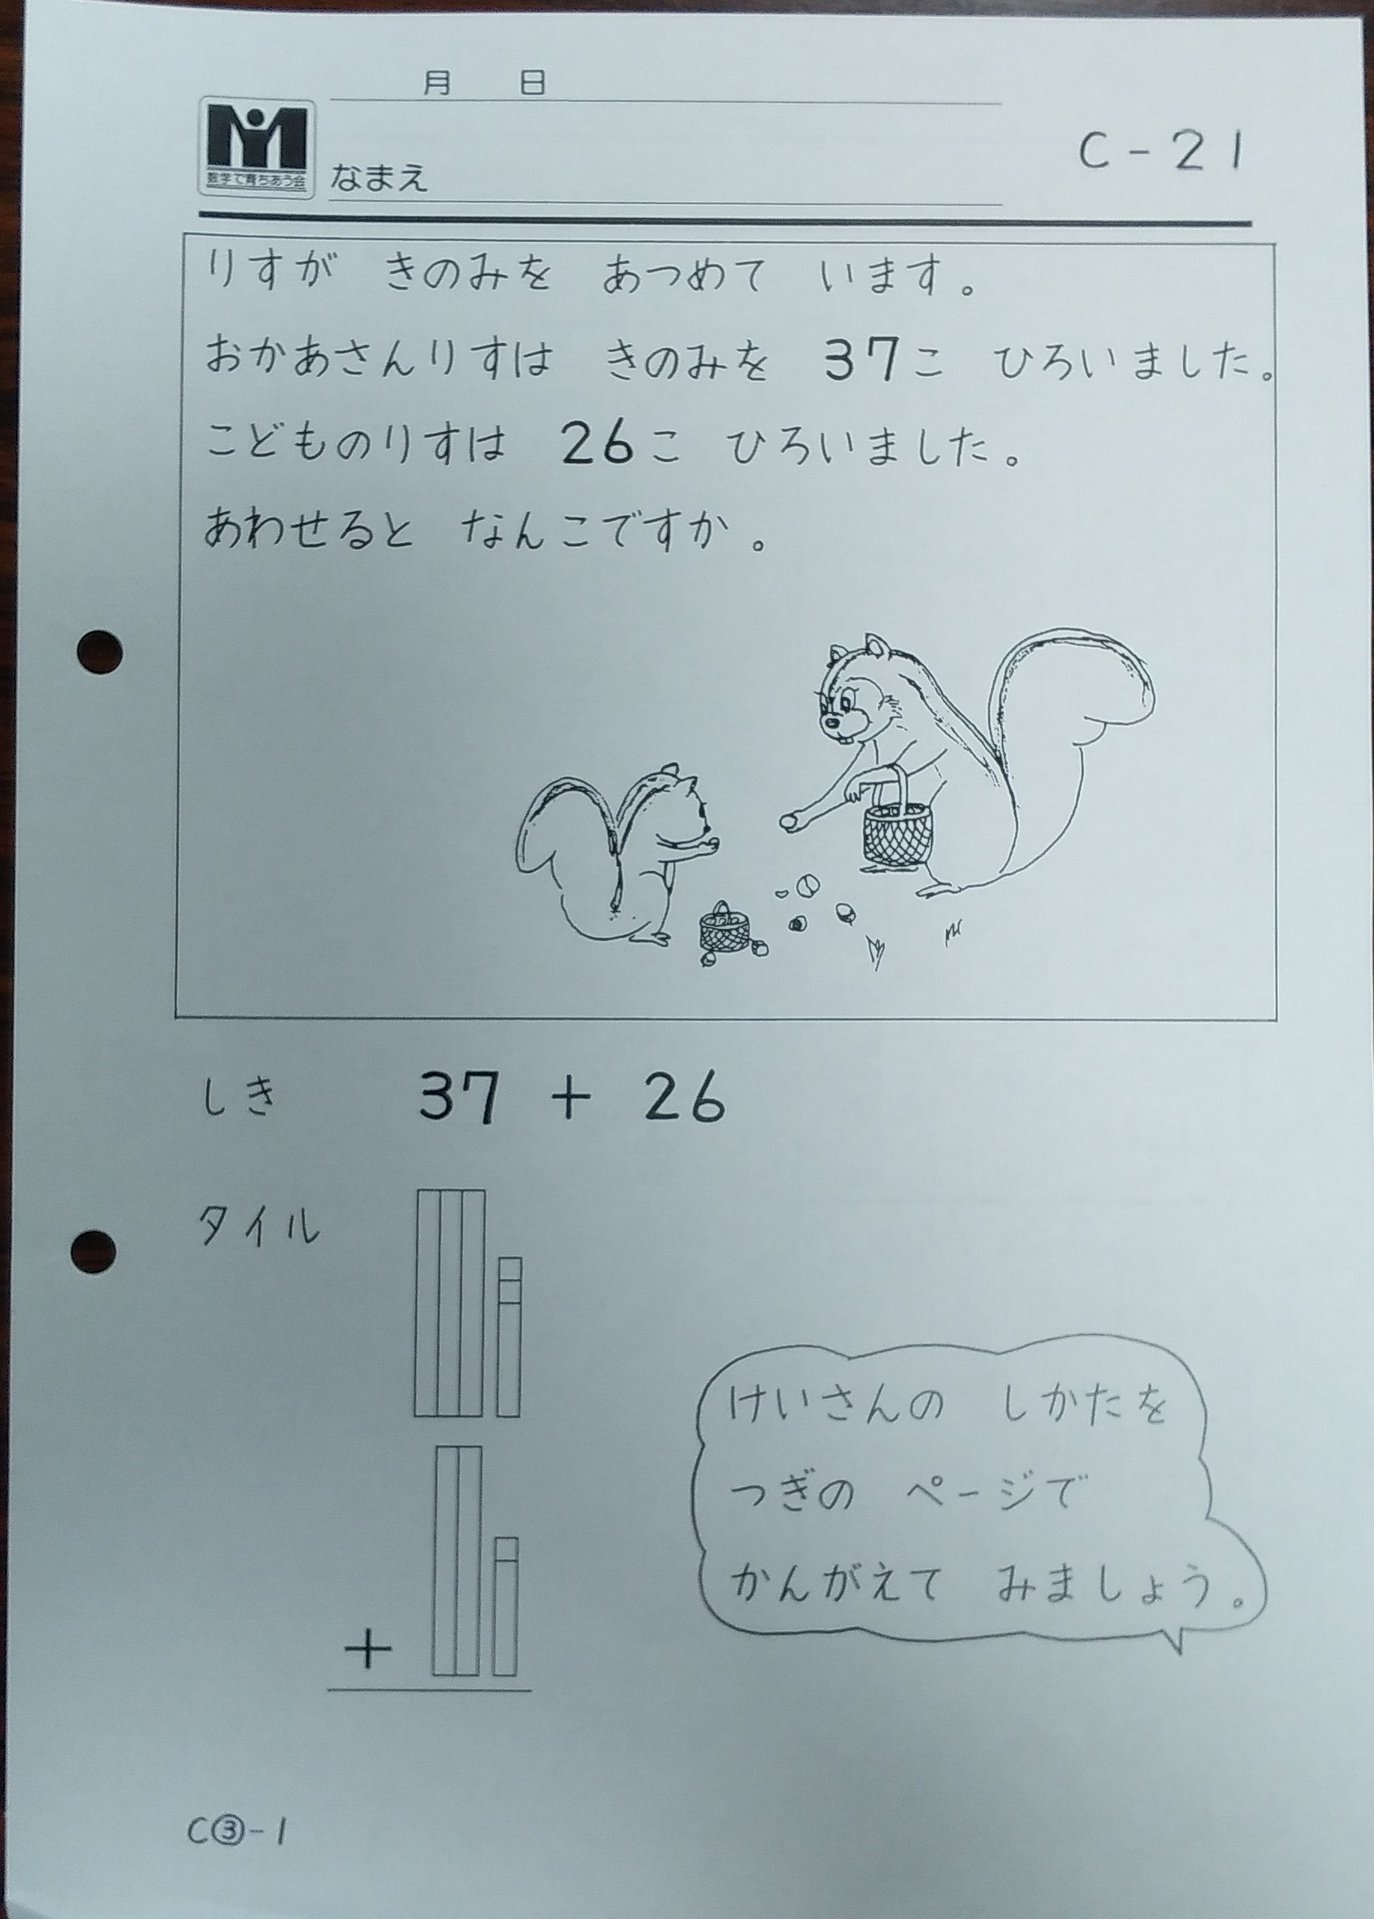 月 日
数学で育ちあう会
なまえ
C-21
りすが きのみを あつめて います。
おかあさんりすは きのみを 37こ ひろいました。
こどものりすは 26こ ひろいました。
あわせると なんこですか。
しき 37 + 26
タイル
けいさんの しかたを
つぎの ページで
かんがえて みましょう。
+
C③-1